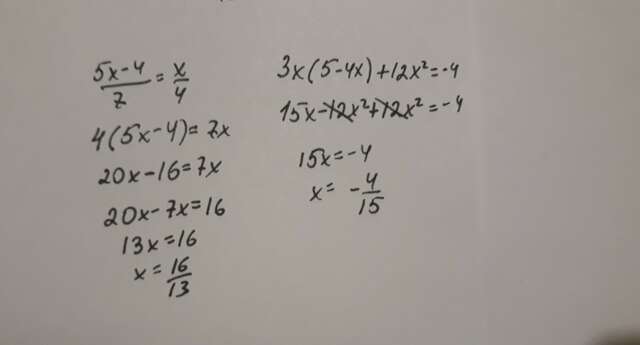 5x-4/7 = x/4
4(5x-4)=7x
20x-16=7x
20x-7x=16
13x=16
x=16/13
3x(5-4x)+12x²=-4
15x-12x²+12x²=-4
15x=-4
x= -4/15